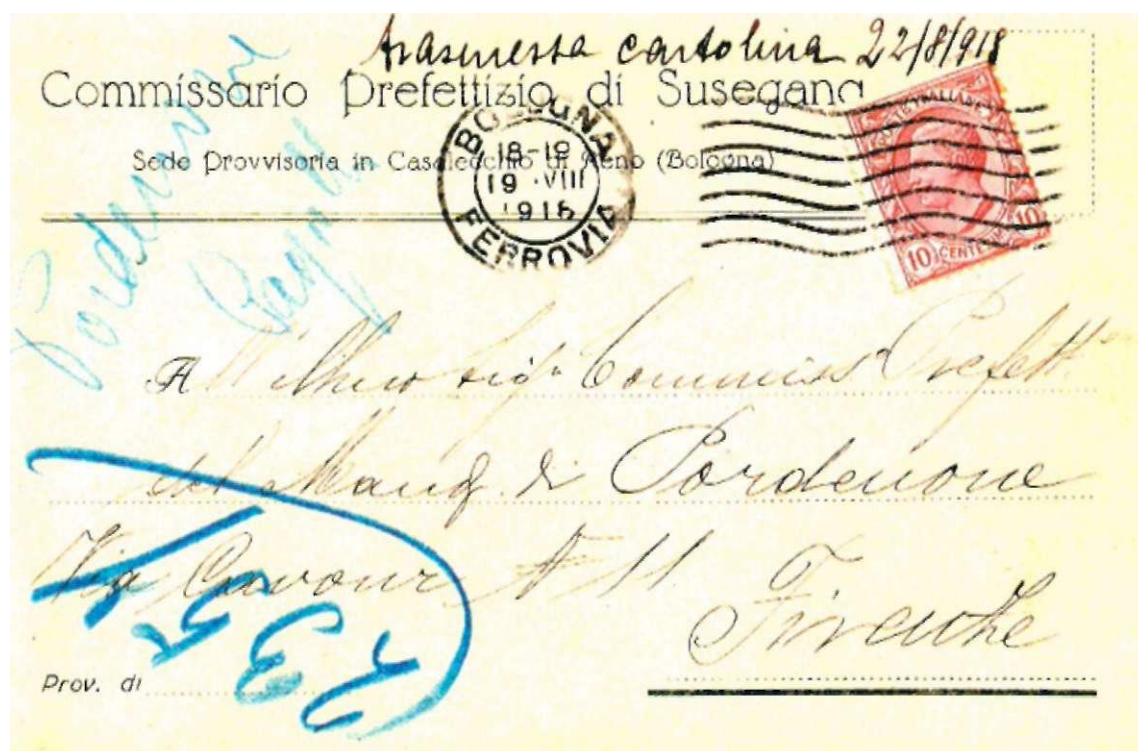 trasmessa cartolina 22/8/918
Commissario Prefettizio di Susegana
Sede Provvisoria in Casalecchio di Reno (Bologna)
BOLOGNA
18-19
19 ·VIII
1918
FERROVIA
10 CENT
10
Pordenone
All' Illmo Sigr Commiss Prefett
del Mand. di Pordenone
Via Cavour N 11
Firenze
Prov. di